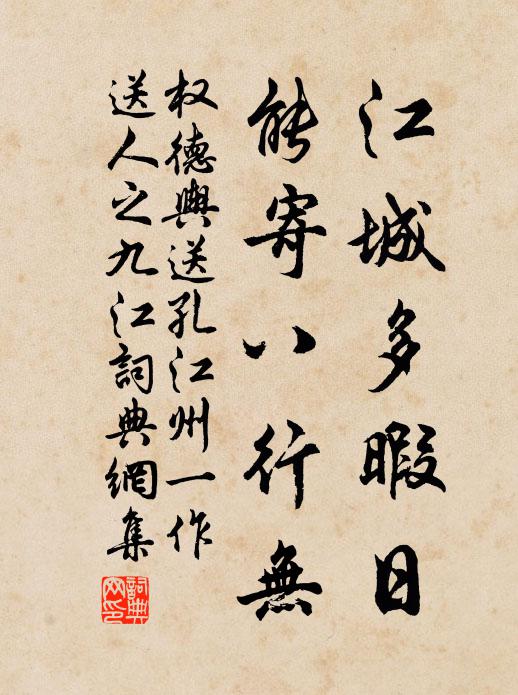 江城多暇日
能寄八行無
权德輿送孔江州一作
送人之九江詞典網集
詞典
网印